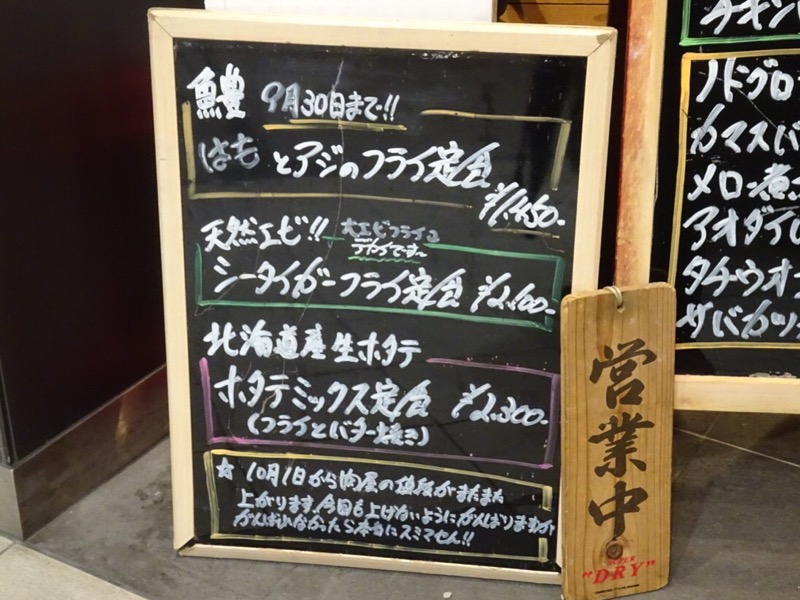 鱧 9月30日まで!!
はも とアジのフライ定食
¥1,450-
天然エビ!! 大エビフライよ
デカイです〜
シータイガーフライ定食 ¥2,100-
北海道産生ホタテ
ホタテミックス定食 ¥2,300-
(フライとバター焼き)
☆ 10月1日から肉屋の値段がまたまた
上がります。今回も上げないようにがんばりますが
がんばれなかったら本当にスミマセン!!
チキン
ノドグロ
カマスバ
メロ煮
アオダイ
タチウオ
サバカツ
営業中
SUPER
"DRY"